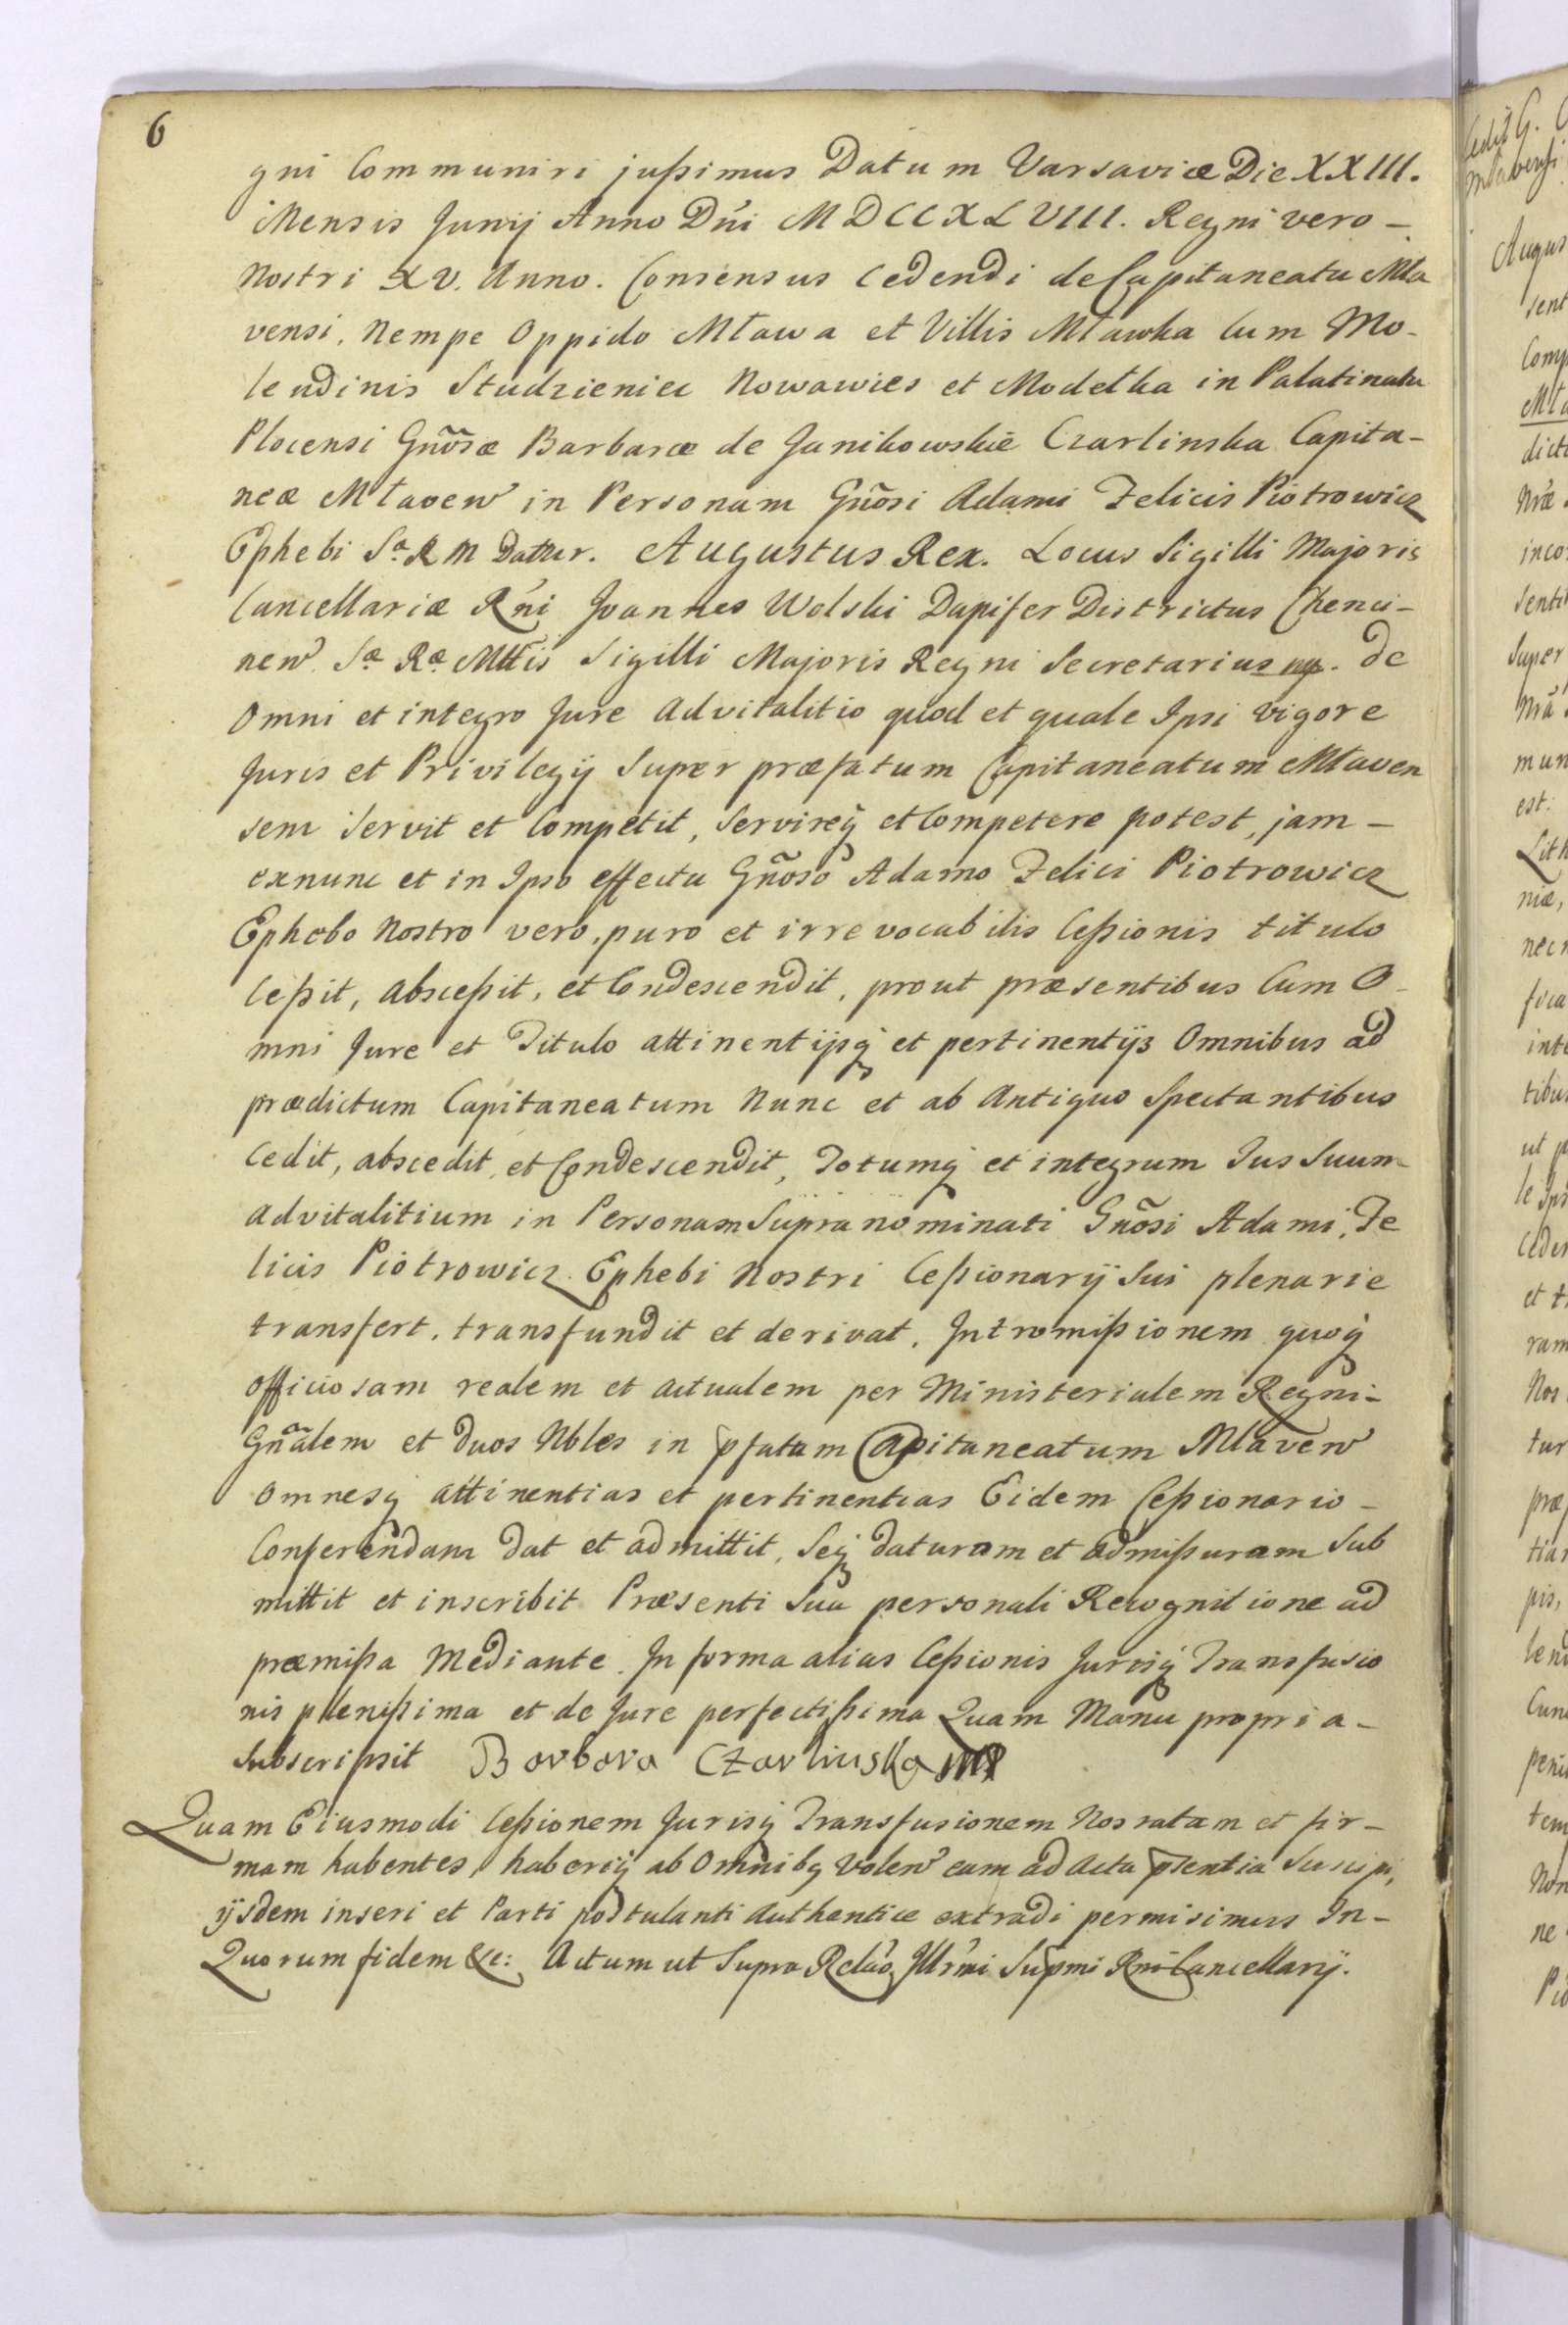 6
gni Communiri jußimus Datum Varsaviæ Die XXIII.
Mensis Junij Anno Dni MDCCXLVIII. Regni vero –
Nostri XV. Anno. Consensus Cedendi de Capitaneatu Mla
vensi, Nempe Oppido Mława et Villis Mławka Cum Mo-
lendinis Studzieniec Nowawies et Modełka in Palatinatu
Plocensi Gnõsæ Barbaræ de Janikowskie Czarlinska Capita-
neæ Młaven in Personam Gnõsi Adami Felicis Piotrowicz
Ephebi Sª R M Datur. Augustus Rex. Locus Sigilli Majoris
Cancellariæ Rni Joannes Wolski Dapifer Districtus Chenci-
nen Sæ Ræ Mttis Sigilli Majoris Regni Secretarius mp. De
Omni et integro Jure Advitalitio quod et quale Ipsi vigore
Juris et Privilegij Super præfatum Capitaneatum Mlaven
sem Servit et Competit, Servireq et Competere potest, jam –
exnunc et in Ipso effectu Gnõso Adamo Felici Piotrowicz
Ephebo Nostro vero, puro et irrevocabilis Ceßionis titulo
Ceßit, absceßit, et Condescendit, prout præsentibus Cum O-
mni Jure et Titulo attinentijsq et pertinentijs Omnibus ad
prædictum Capitaneatum Nunc et ab Antiquo Spectantibus
Cedit, abscedit, et Condescendit, Totumq et integrum Jus Suum
advitalitium in Personam Supranominati Gnõsi Adami, Fe
licis Piotrowicz Ephebi Nostri Ceßionarij Sui plenarie
transfert, transfundit et derivat, Intromißionem quoq
officiosam realem et actualem per Ministerialem Regni-
Gnãlem et duos Nbles in pfatum Capitaneatum Mlaven
omnesq attinentias et pertinentias Eidem Ceßionario –
Conferendam dat et admittit, Seq daturam et admißuram Sub
mittit et inscribit Præsenti Sua personali Recognitione ad
præmißa Mediante. In forma alias Ceßionis Jurisq Transfusio
nis plenißima et de Jure perfectißima Quam Manu propria –
Subscripsit Barbara Czarlinska mp
Quam Eiusmodi Ceßionem Jurisq Transfusionem Nos ratam et fir-
mam habentes, haberiq ab Omnibq Volen eam ad Acta psentia Suscipi,
ijsdem inseri et Parti postulanti Authentice extradi permisimus In-
Quorum fidem &c: Actum ut Supra Relão Illrmi Supmi Rni Cancellarij.